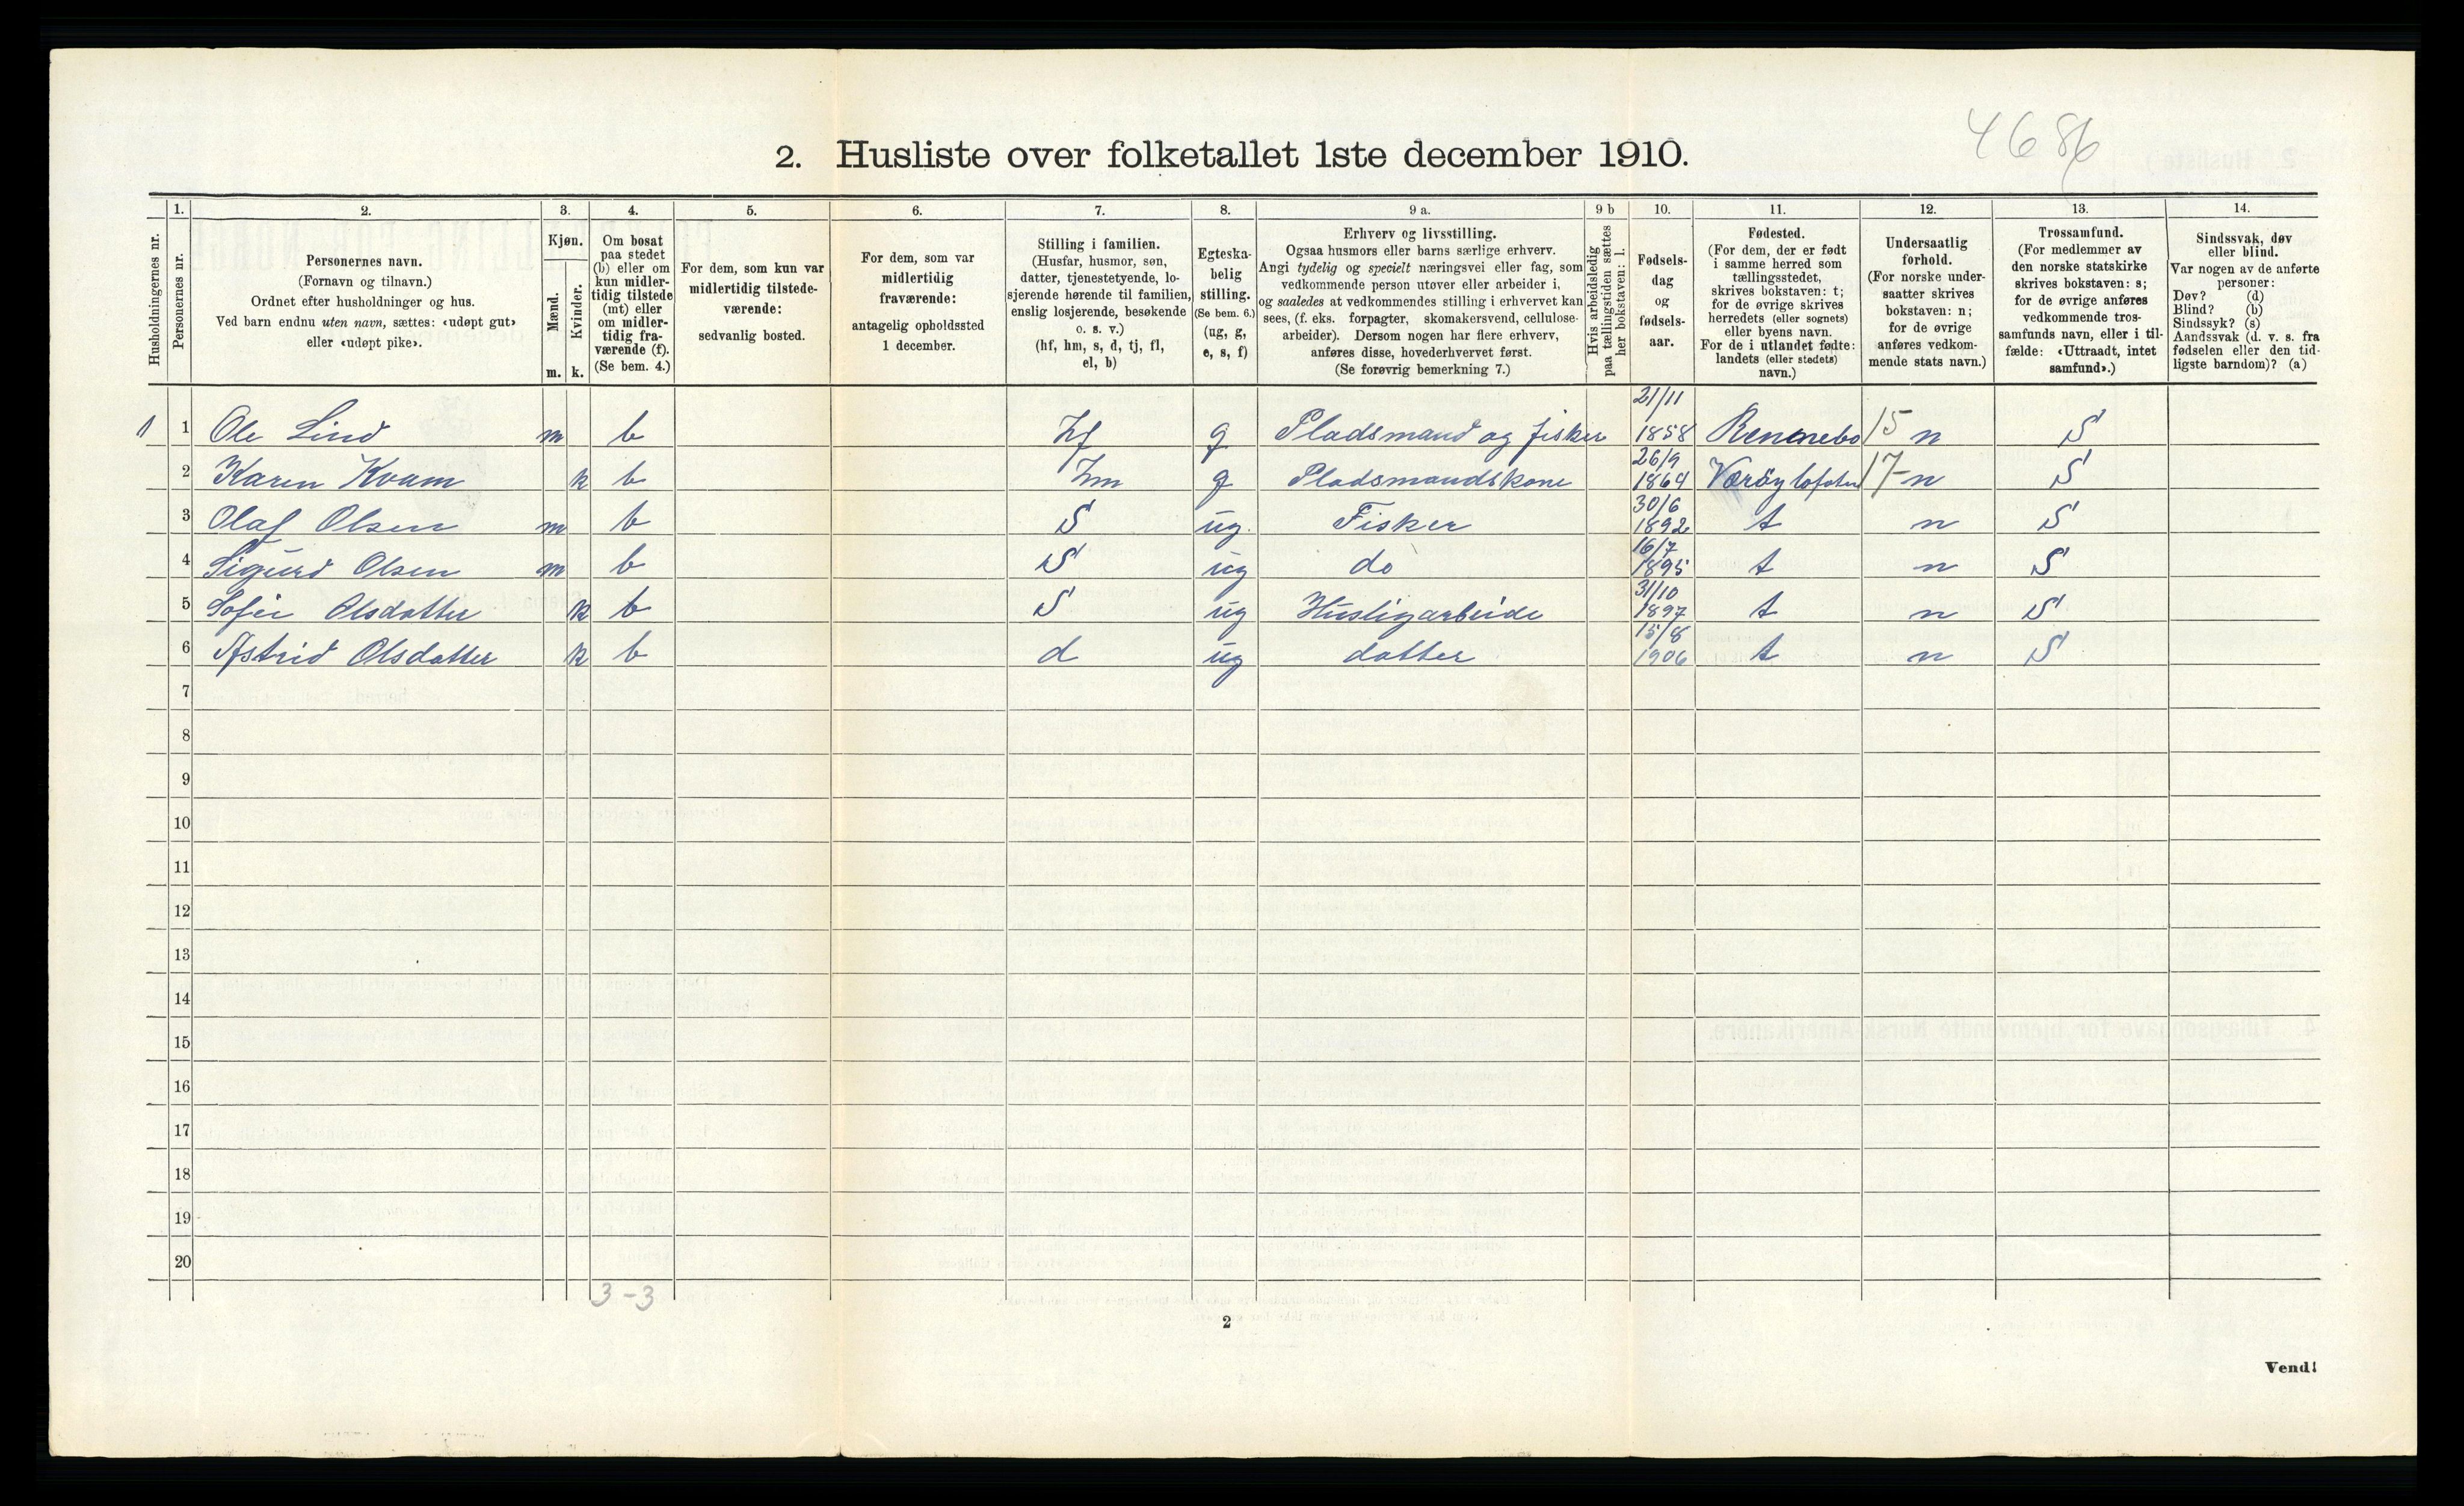 4686
2. Husliste over folketallet 1ste december 1910.
Husholdningernes nr.
1. Personernes nr.
2. Personernes navn.
(Fornavn og tilnavn.)
Ordnet efter husholdninger og hus.
Ved barn endnu uten navn, sættes: «udøpt gut»
eller «udøpt pike».
3. Kjøn.
Mænd. m.
Kvinder. k.
4. Om bosat
paa stedet
(b) eller om
kun midler-
tidig tilstede
(mt) eller
om midler-
tidig fra-
værende (f).
(Se bem. 4.)
5. For dem, som kun var
midlertidig tilstede-
værende:
sedvanlig bosted.
6. For dem, som var
midlertidig
fraværende:
antagelig opholdssted
1 december.
7. Stilling i familien.
(Husfar, husmor, søn,
datter, tjenestetyende, lo-
sjerende hørende til familien,
enslig losjerende, besøkende
o. s. v.)
(hf, hm, s, d, tj, fl,
el, b)
8. Egteska-
belig
stilling.
(Se bem. 6.)
(ug, g,
e, s, f)
9 a. Erhverv og livsstilling.
Ogsaa husmors eller barns særlige erhverv.
Angi tydelig og specielt næringsvei eller fag, som
vedkommende person utøver eller arbeider i,
og saaledes at vedkommendes stilling i erhvervet kan
sees, (f. eks. forpagter, skomakersvend, cellulose-
arbeider). Dersom nogen har flere erhverv,
anføres disse, hovederhvervet først.
(Se forøvrig bemerkning 7.)
9 b Hvis arbeidsledig
paa tællingstiden sættes
her bokstaven: l.
10. Fødsels-
dag
og
fødsels-
aar.
11. Fødested.
(For dem, der er født
i samme herred som
tællingsstedet,
skrives bokstaven: t;
for de øvrige skrives
herredets (eller sognets)
eller byens navn.
For de i utlandet fødte:
landets (eller stedets)
navn.)
12. Undersaatlig
forhold.
(For norske under-
saatter skrives
bokstaven: n;
for de øvrige
anføres vedkom-
mende stats navn.)
13. Trossamfund.
(For medlemmer av
den norske statskirke
skrives bokstaven: s;
for de øvrige anføres
vedkommende tros-
samfunds navn, eller i til-
fælde: «Uttraadt, intet
samfund».)
14. Sindssvak, døv
eller blind.
Var nogen av de anførte
personer:
Døv? (d)
Blind? (b)
Sindssyk? (s)
Aandssvak (d. v. s. fra
fødselen eller den tid-
ligste barndom)? (a)
1 1 Ole Lind m b hf g Pladsmand og fisker 21/11 1858 Rennebo 15 n S
2 Karen Kvam k b hm g Pladsmandskone 26/9 1864 Værøy lofoten 17 n S
3 Olaf Olsen m b S ug. Fisker 30/6 1892 t n S
4 Sigurd Olsen m b S ug do 16/7 1895 t n S
5 Sofie Olsdatter k b S ug Husligarbeide 31/10 1897 t n S
6 Astrid Olsdatter k b d ug datter 15/8 1906 t n S
7
8
9
10
11
12
13
14
15
16
17
18
19
20
3-3
2
Vend!